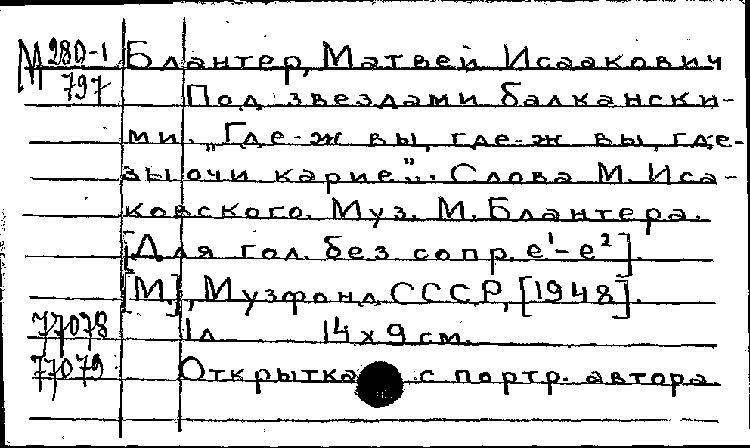 М 280-1 Блантер, Матвей Исаакович
797 Под звездами балкански-
ми. „Где-ж вы, где-ж вы, где-
вы очи карие". Слова М. Иса-
ковского. Муз. М. Блантера.
[Для гол. без сопр. e¹-e²].
[М.], Музфонд СССР, [1948].
77078 1 л 14 x 9 см.
77079 Открытка с портр. автора.